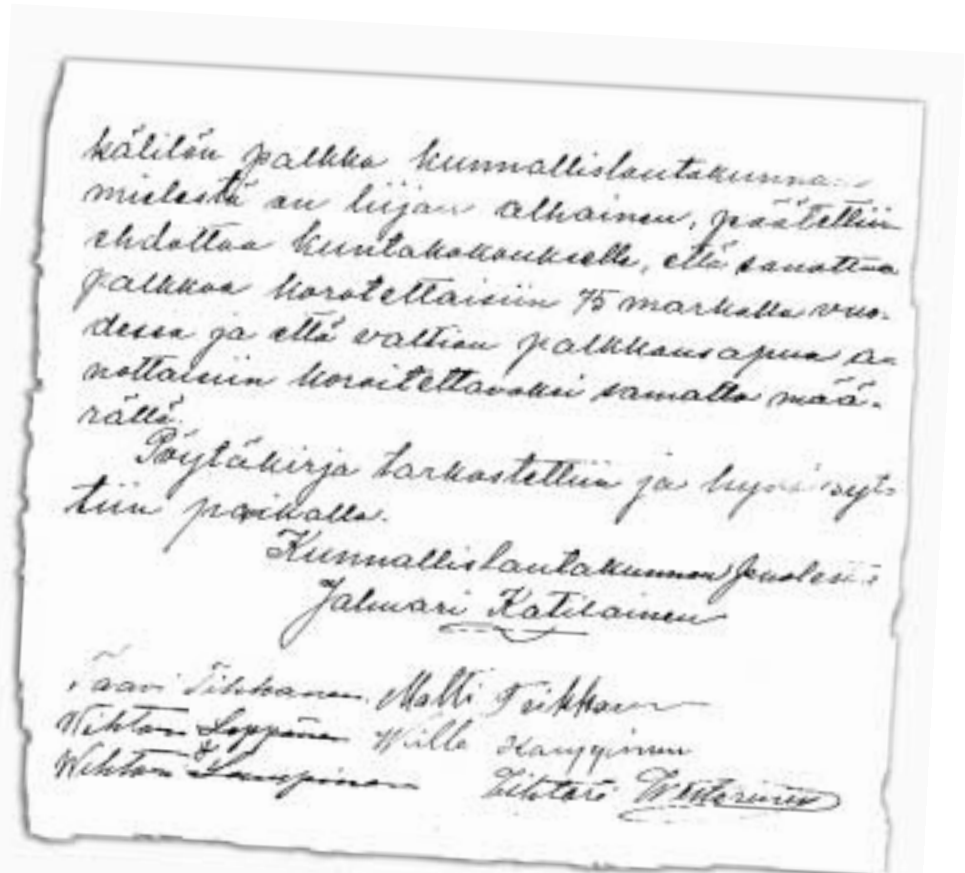 kätilön palkka kunnallislautakunnan
mielestä on liijan alhainen, päätettiin
ehdottaa kuntakokoukselle, että sanottua
palkkaa korotettaisiin 75 markalla vuo-
dessa ja että valtion palkkausapua a-
nottaisiin koroitettavaksi samalla mää-
rällä.
Pöytäkirja tarkastettiin ja hyväksyt-
tiin paikalla.
Kunnallislautakunnan puolesta
Jalmari Katilainen
Taavi Tikkanen Matti Teikkonen
Wihtori Loppinen Wille Kauppinen
Wihtori Lampinen Vihtori Westerinen